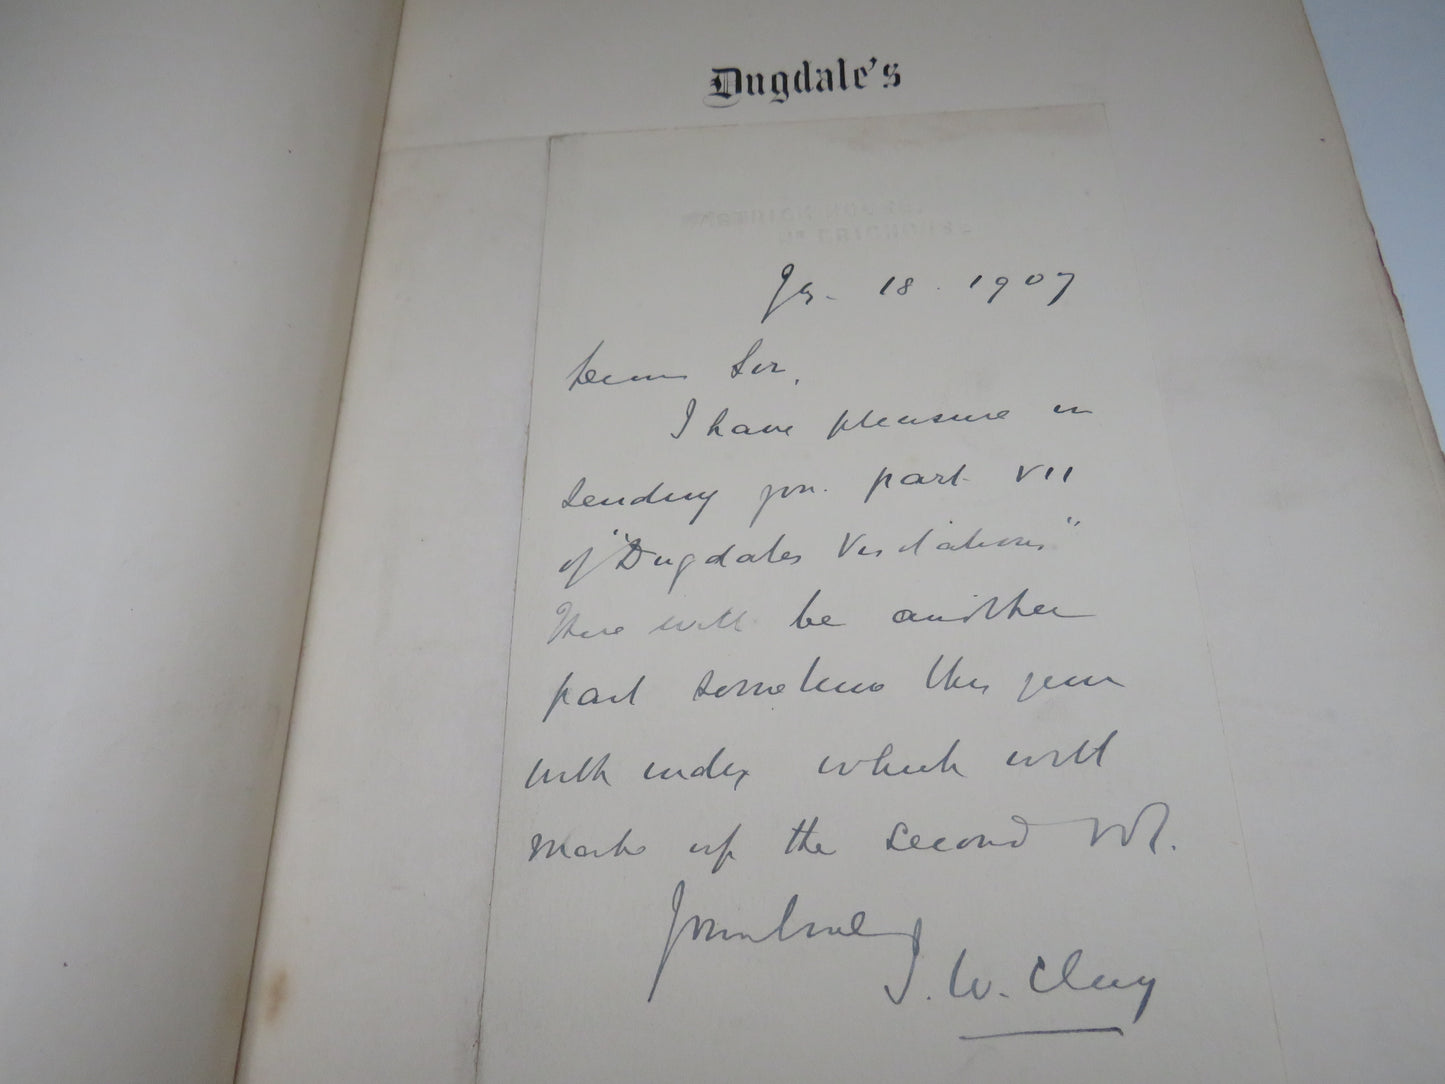 Dugdale's
RASTRICK HOUSE,
Nr BRIGHOUSE.
18. 1907
Dear Sir,
I have pleasure in
sending you part VII
of "Dugdales Visitations"
There will be another
part sometime this year
with index which will
make up the second vol.
Yours truly
J. W. Clay